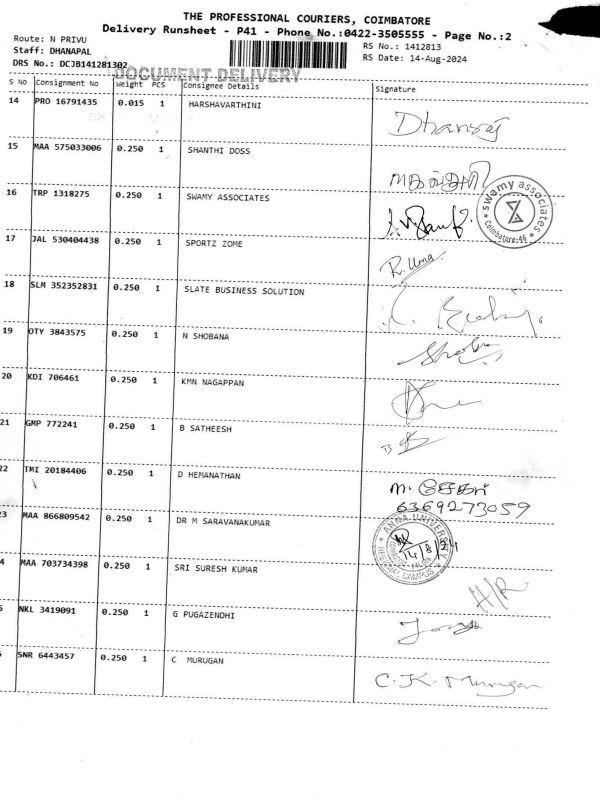 THE PROFESSIONAL COURIERS, COIMBATORE
Delivery Runsheet - P41 - Phone No.:0422-3505555 - Page No.:2
Route: N PRIVU
RS No.: 1412813
Staff: DHANAPAL
RS Date: 14-Aug-2024
DRS No.: DCJB141281302
DOCUMENT DELIVERY
S NO Consignment No Weight PCS Consignee Details Signature
14 PRO 16791435 0.015 1 HARSHAVARTHINI Dhanraj
15 MAA 575033006 0.250 1 SHANTHI DOSS
16 TRP 1318275 0.250 1 SWAMY ASSOCIATES
swamy associates
Coimbatore-46
17 JAL 530404438 0.250 1 SPORTZ ZOME R. Uma
18 SLM 352352831 0.250 1 SLATE BUSINESS SOLUTION
19 OTY 3843575 0.250 1 N SHOBANA
20 KDI 706461 0.250 1 KMN NAGAPPAN
21 GMP 772241 0.250 1 B SATHEESH
22 TMI 20184406 0.250 1 D HEMANATHAN m. சேகர்
6369273059
3 MAA 866809542 0.250 1 DR M SARAVANAKUMAR
ANNA UNIVERSITY
REGIONAL CAMPUS
14/8/24
4 MAA 703734398 0.250 1 SRI SURESH KUMAR H/R
NKL 3419091 0.250 1 G PUGAZENDHI
SNR 6443457 0.250 1 C MURUGAN C.K. Murugan